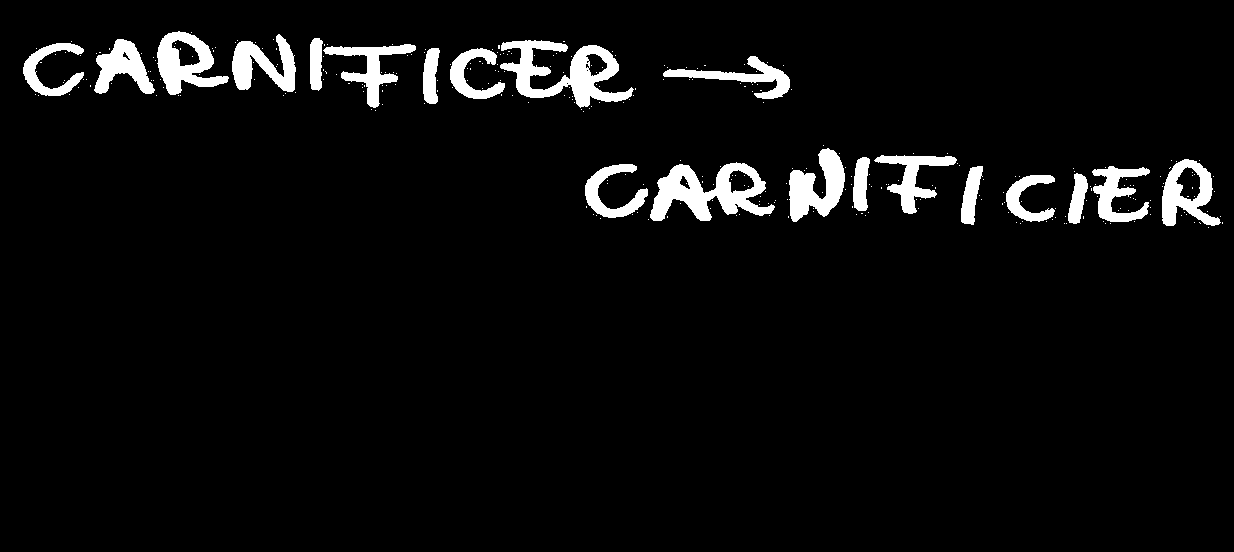 CARNIFICER →
CARNIFICIER